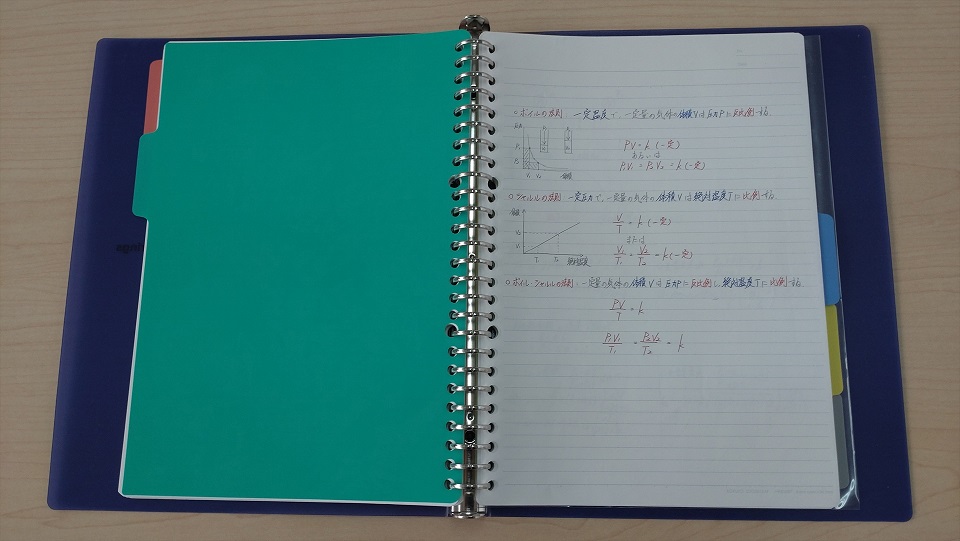 ○ボイルの法則 一定温度で、一定量の気体の体積Vは圧力Pに反比例する
圧力
P₁
P₂
V₁ V₂ 体積
PV = k (一定)
あるいは
P₁V₁ = P₂V₂ = k (一定)
○シャルルの法則 一定圧力で、一定量の気体の体積Vは絶対温度Tに比例する
体積
V₂
V₁
T₁ T₂ 絶対温度
V/T = k (一定)
または
V₁/T₁ = V₂/T₂ = k (一定)
○ボイル・シャルルの法則 一定量の気体の体積Vは圧力Pに反比例し、絶対温度Tに比例する
PV/T = k
P₁V₁/T₁ = P₂V₂/T₂ = k